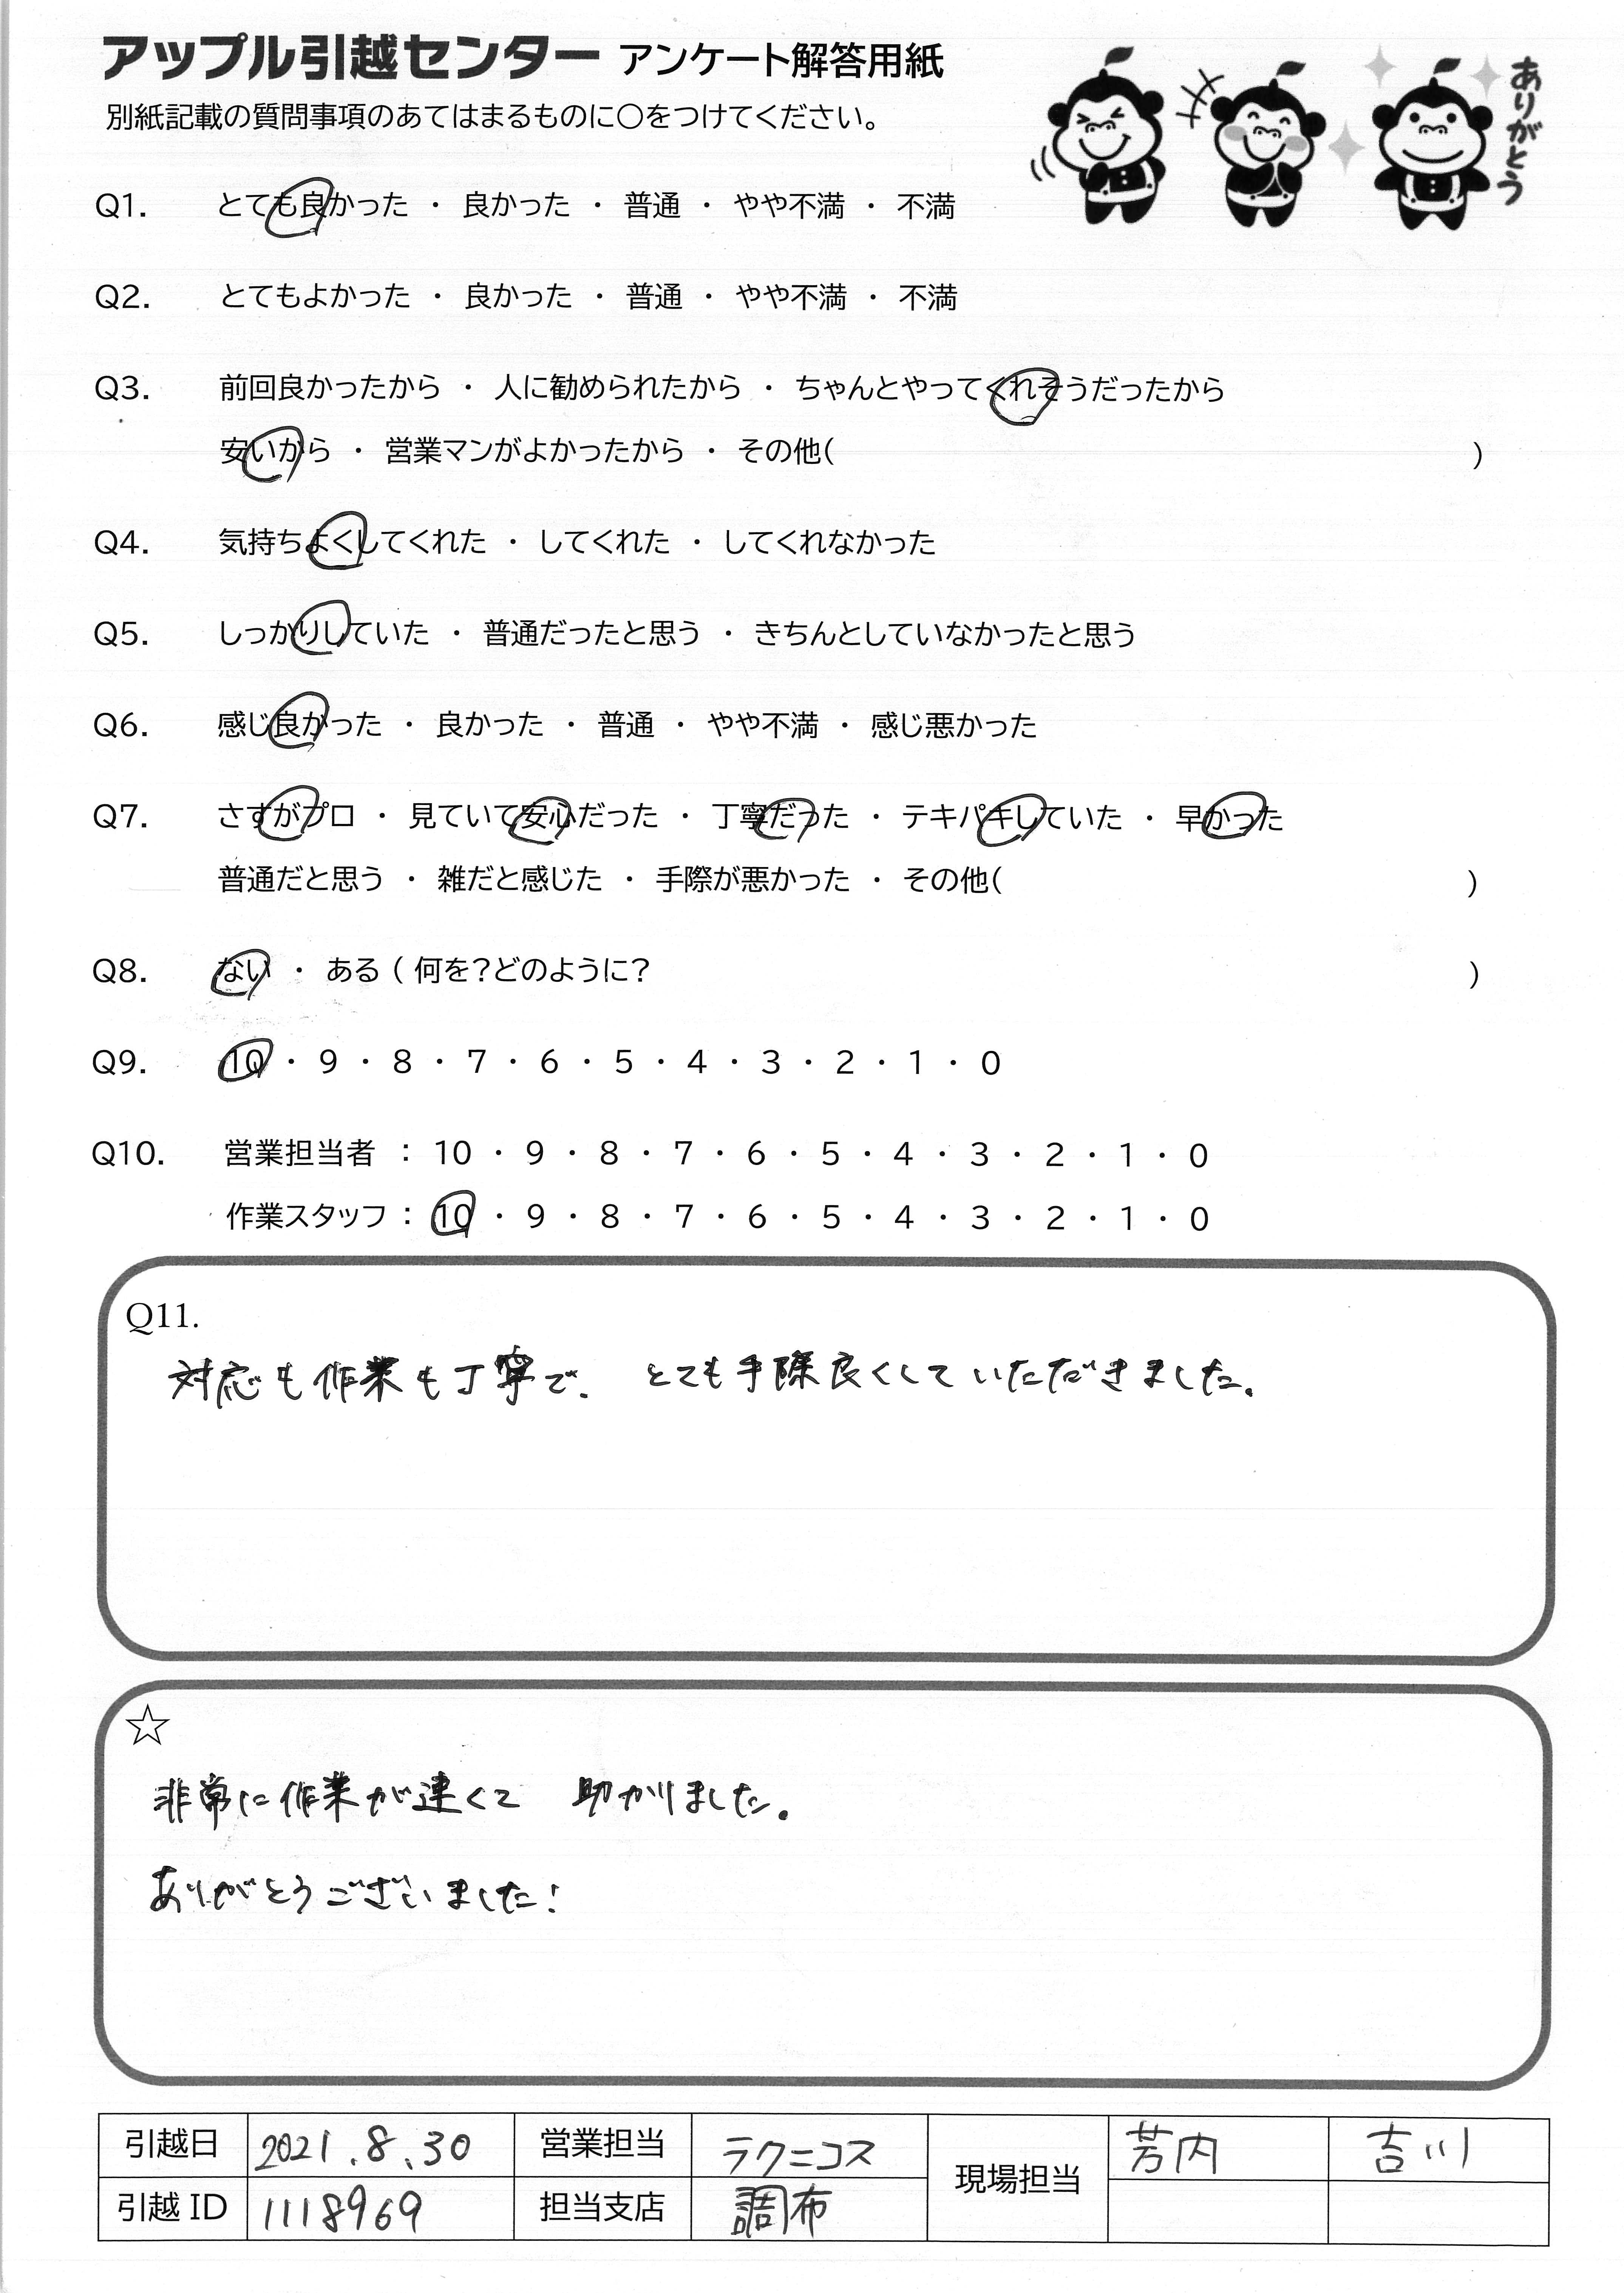 アップル引越センター アンケート解答用紙
別紙記載の質問事項のあてはまるものに〇をつけてください。
ありがとう
Q1. とても良かった ・ 良かった ・ 普通 ・ やや不満 ・ 不満
Q2. とてもよかった ・ 良かった ・ 普通 ・ やや不満 ・ 不満
Q3. 前回良かったから ・ 人に勧められたから ・ ちゃんとやってくれそうだったから
安いから ・ 営業マンがよかったから ・ その他( )
Q4. 気持ちよくしてくれた ・ してくれた ・ してくれなかった
Q5. しっかりしていた ・ 普通だったと思う ・ きちんとしていなかったと思う
Q6. 感じ良かった ・ 良かった ・ 普通 ・ やや不満 ・ 感じ悪かった
Q7. さすがプロ ・ 見ていて安心だった ・ 丁寧だった ・ テキパキしていた ・ 早かった
普通だと思う ・ 雑だと感じた ・ 手際が悪かった ・ その他( )
Q8. ない ・ ある ( 何を?どのように? )
Q9. 10 ・ 9 ・ 8 ・ 7 ・ 6 ・ 5 ・ 4 ・ 3 ・ 2 ・ 1 ・ 0
Q10. 営業担当者 : 10 ・ 9 ・ 8 ・ 7 ・ 6 ・ 5 ・ 4 ・ 3 ・ 2 ・ 1 ・ 0
作業スタッフ : 10 ・ 9 ・ 8 ・ 7 ・ 6 ・ 5 ・ 4 ・ 3 ・ 2 ・ 1 ・ 0
Q11.
対応も作業も丁寧で、とても手際良くしていただきました。
☆
非常に作業が速くて 助かりました。
ありがとうございました!
引越日 2021.8.30 営業担当 ラクニコス 現場担当 芳内 吉川
引越 ID 1118969 担当支店 調布